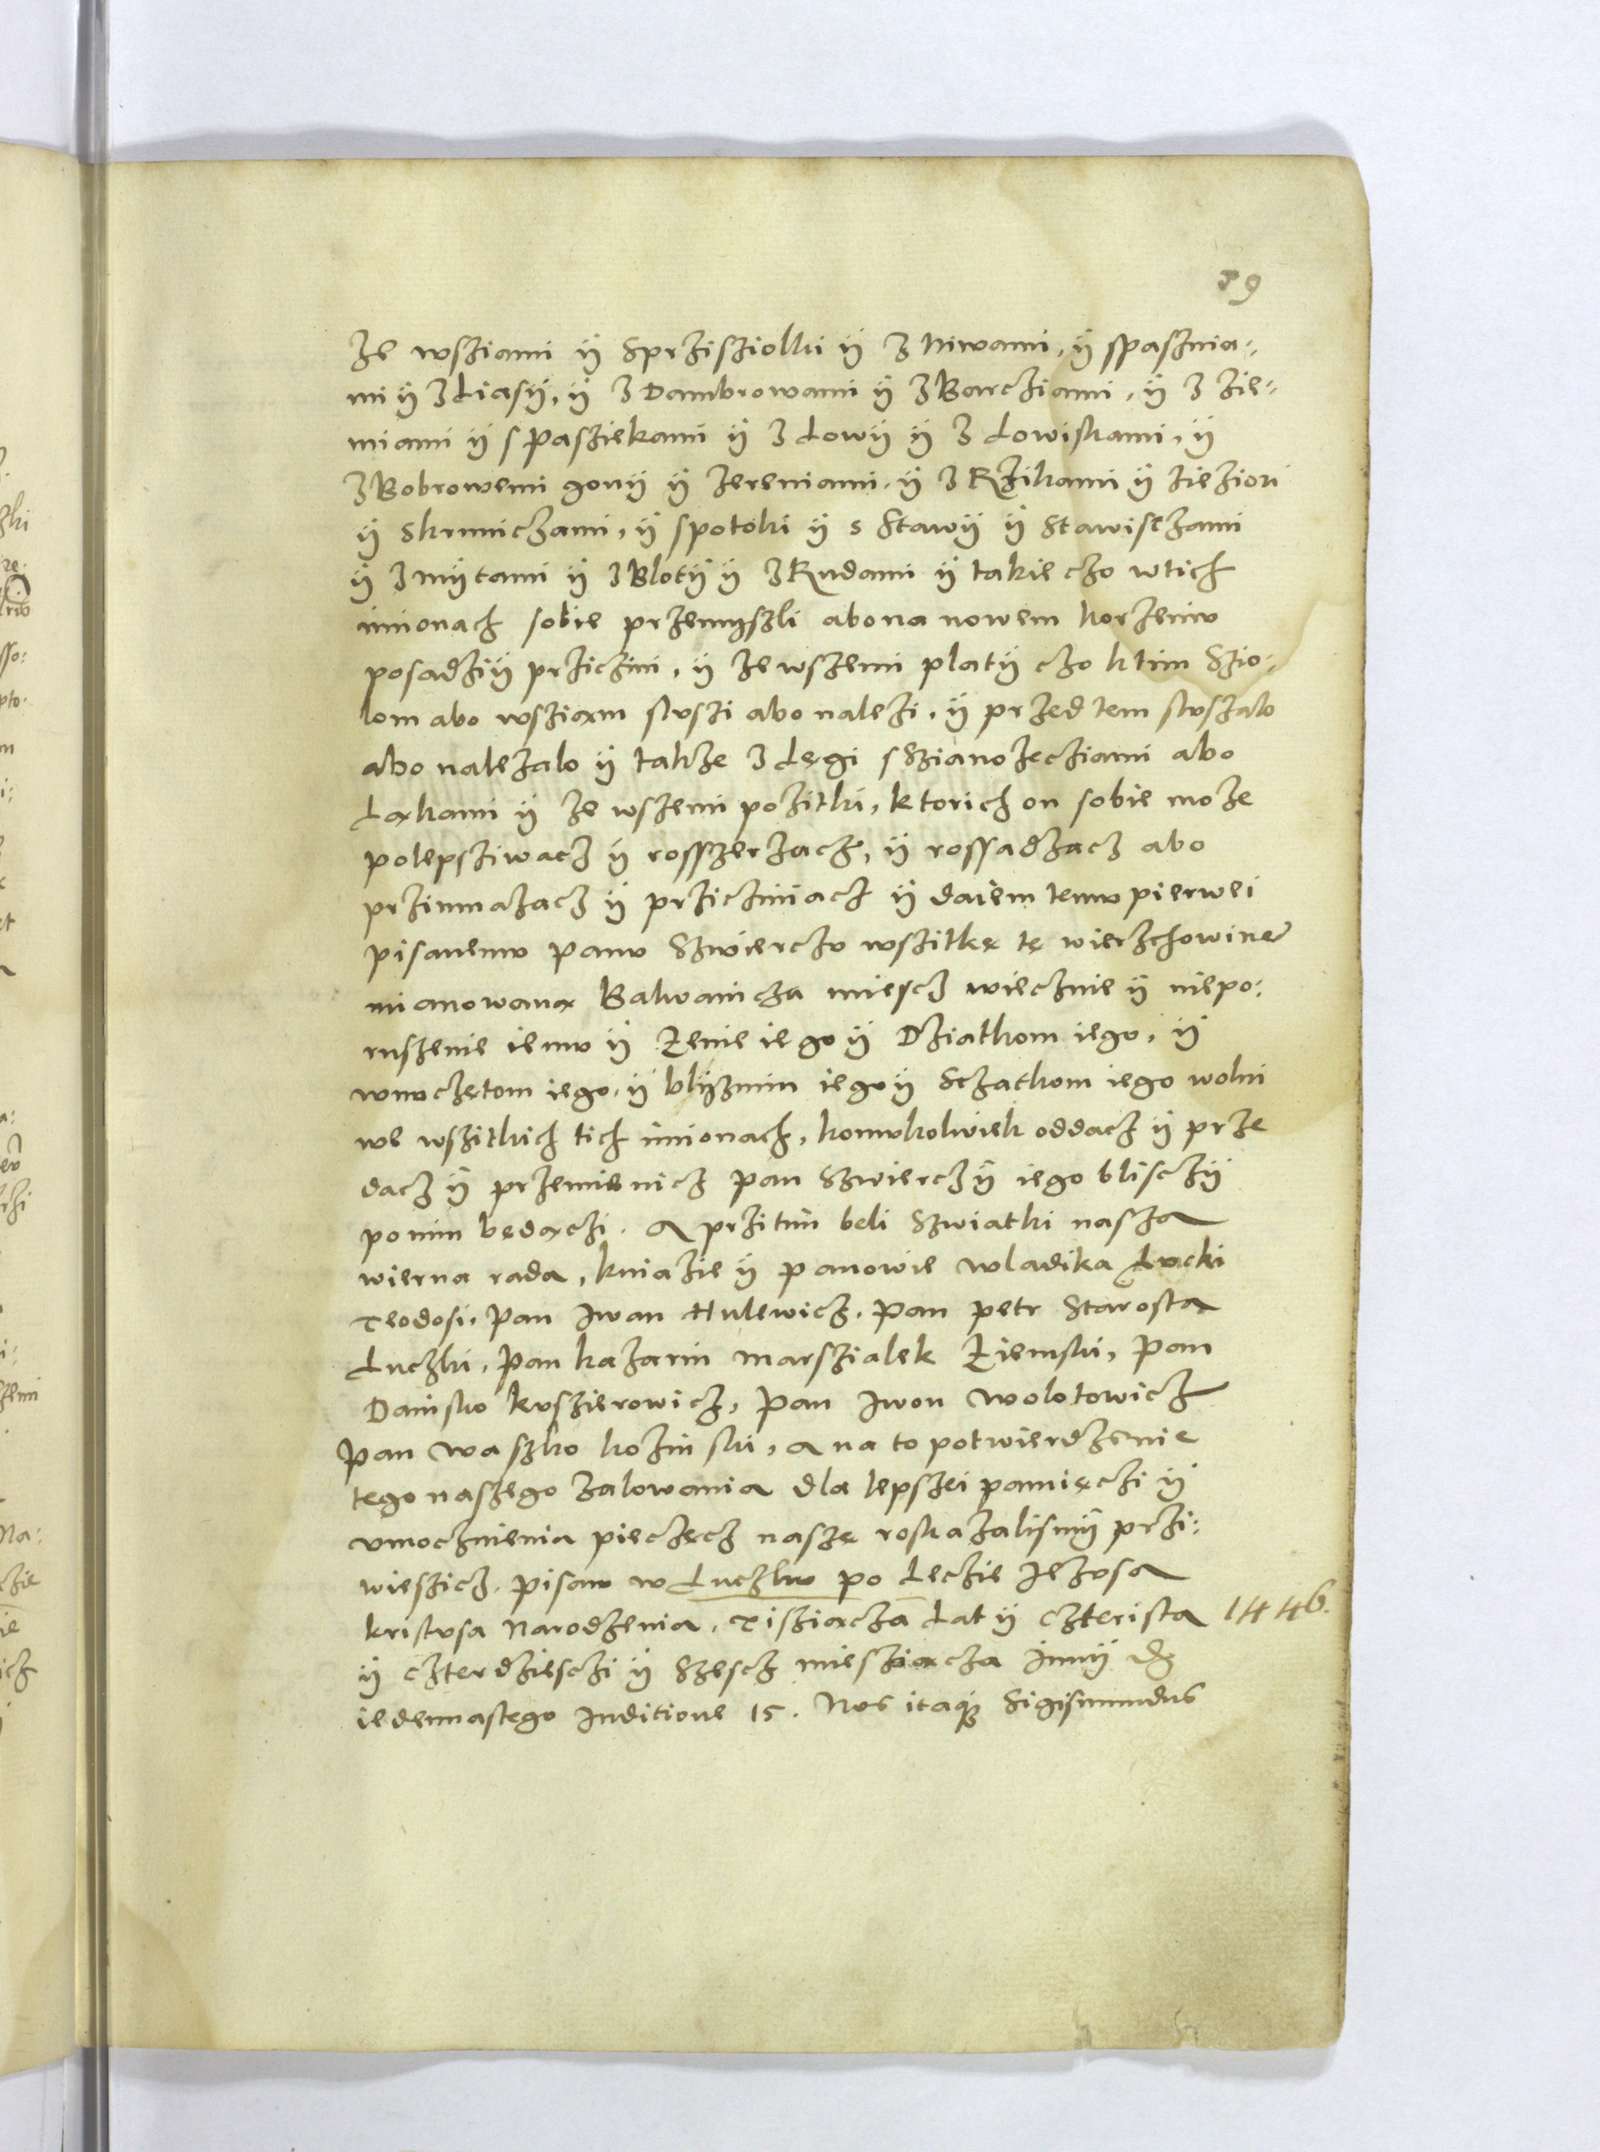 89
że wsziami ÿ Sprzisziolki ÿ З Niwami, ÿ spasznia-
mi ÿ З Liasÿ, ÿ З Dambrowami ÿ З Barcziami, ÿ З zie-
miami ÿ s pasziekami ÿ З Lowÿ ÿ З Lowiskami, ÿ
З Bobrowemi gonÿ ÿ zereniami, ÿ З Rzikami ÿ ziezior
ÿ Skrnniczami, ÿ spotoki ÿ s Stawÿ ÿ Stawisczami
ÿ З mÿtami ÿ З Blotÿ ÿ З Rudami ÿ takie czo wtich
imionach sobie przemyszli abo na nowem korzeniv
posadziÿ prziczini, ÿ ze wszemi platÿ czo ktim Szio-
lom abo wsziam slvszi abo nalezi, ÿ przed tem slvszalo
abo nalezalo ÿ takze З Lęgi s Szianozecziami abo
Ląkami ÿ ze wszemi pozitki, ktorich on sobie moze
polepsziwacz ÿ rosszerzacz, ÿ rossadzacz abo
przimnazacz ÿ prziczinacz ÿ daiem temv pierwei
pisanemv panv Szwierczv wszitkę tę wierzchowinę
mianowaną Balwanicza miescz wiecznie ÿ niepo-
ruszenie iemv ÿ Zenie iego ÿ Dziatkom iego, ÿ
wnvczętom iego, ÿ blÿznim iego ÿ Sczatkom iego wolni
we wszitkich tich imionach, komvkolwiek oddacz ÿ prze
dacz ÿ przemienicz pan Szwierczÿ iego blisczÿ
po nim bedączi. A przitim beli Szwiatki nasza
wierna rada, kniazie ÿ panowie wladika Lvcki
Teodosi, pan Iwan Hulewicz, pan petr Starosta
Luczki, pan kazarin marszialek Ziemski, pan
Danisko kvszierowicz, pan Iwon wolotowicz
pan waszko kozinski, a na to potwierdzenie
tego naszego zalowania dla lepszei pamięczi ÿ
vmocznienia pieczęcz naszę roskazalismÿ przi-
wieszicz. pisan w Luczkv po Leczie Jezvsa
kristvsa Narodzenia, Tisziącza Lat ÿ czterista 1446.
ÿ czterdziesczi ÿ Szescz miesziącza Junÿ
iedennastego Inditione 15. Nos itaque Sigismundus